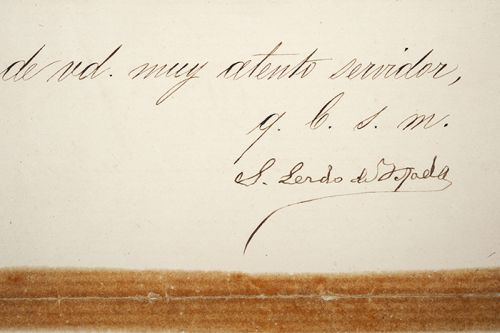 de vd. muy atento servidor,
q. b. s. m.
S. Lerdo de Tejada